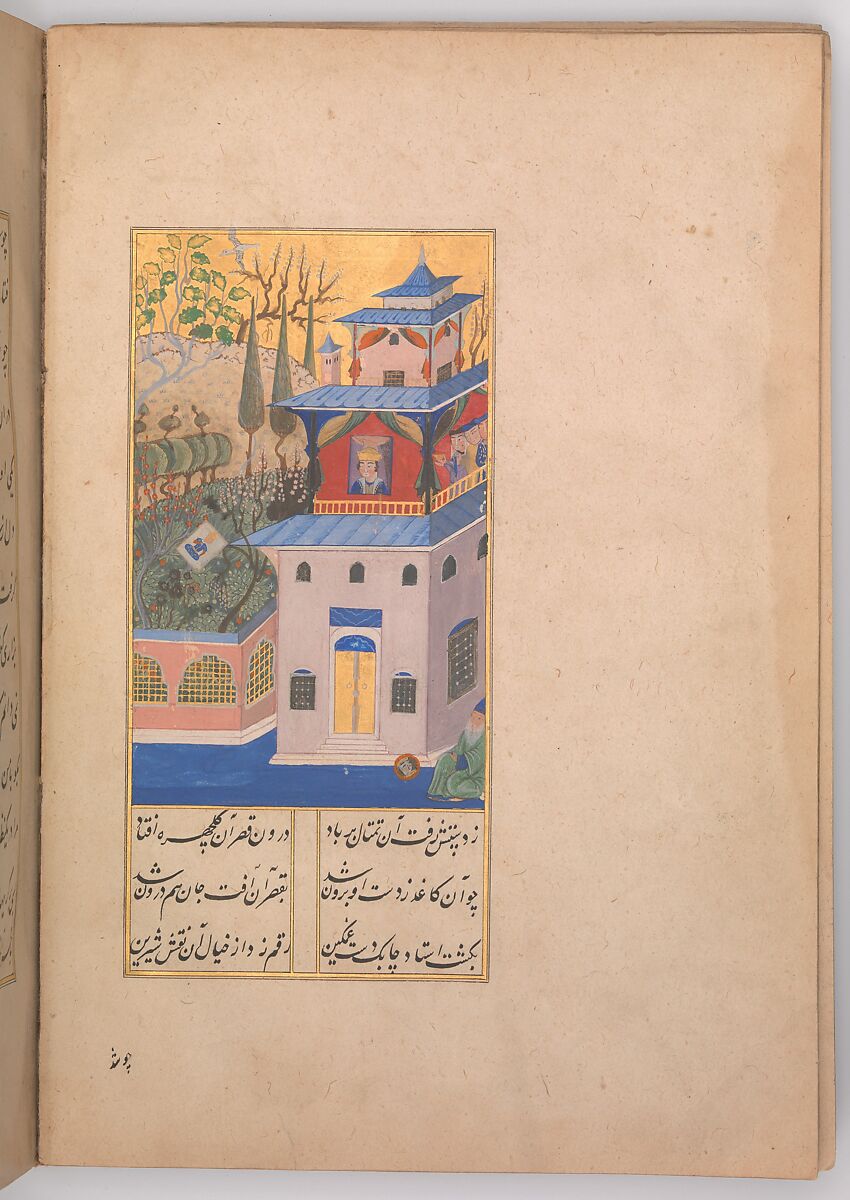 ز دستش رفت آن تمثال بر باد درون قصر آن گلچهره افتاد
چو آن کاغذ ز دست او برون شد بقصر آن آفت جان هم درون شد
بکشت استاد چابک دست غمگین رقم زد از خیال آن نقش شیرین
چو شد